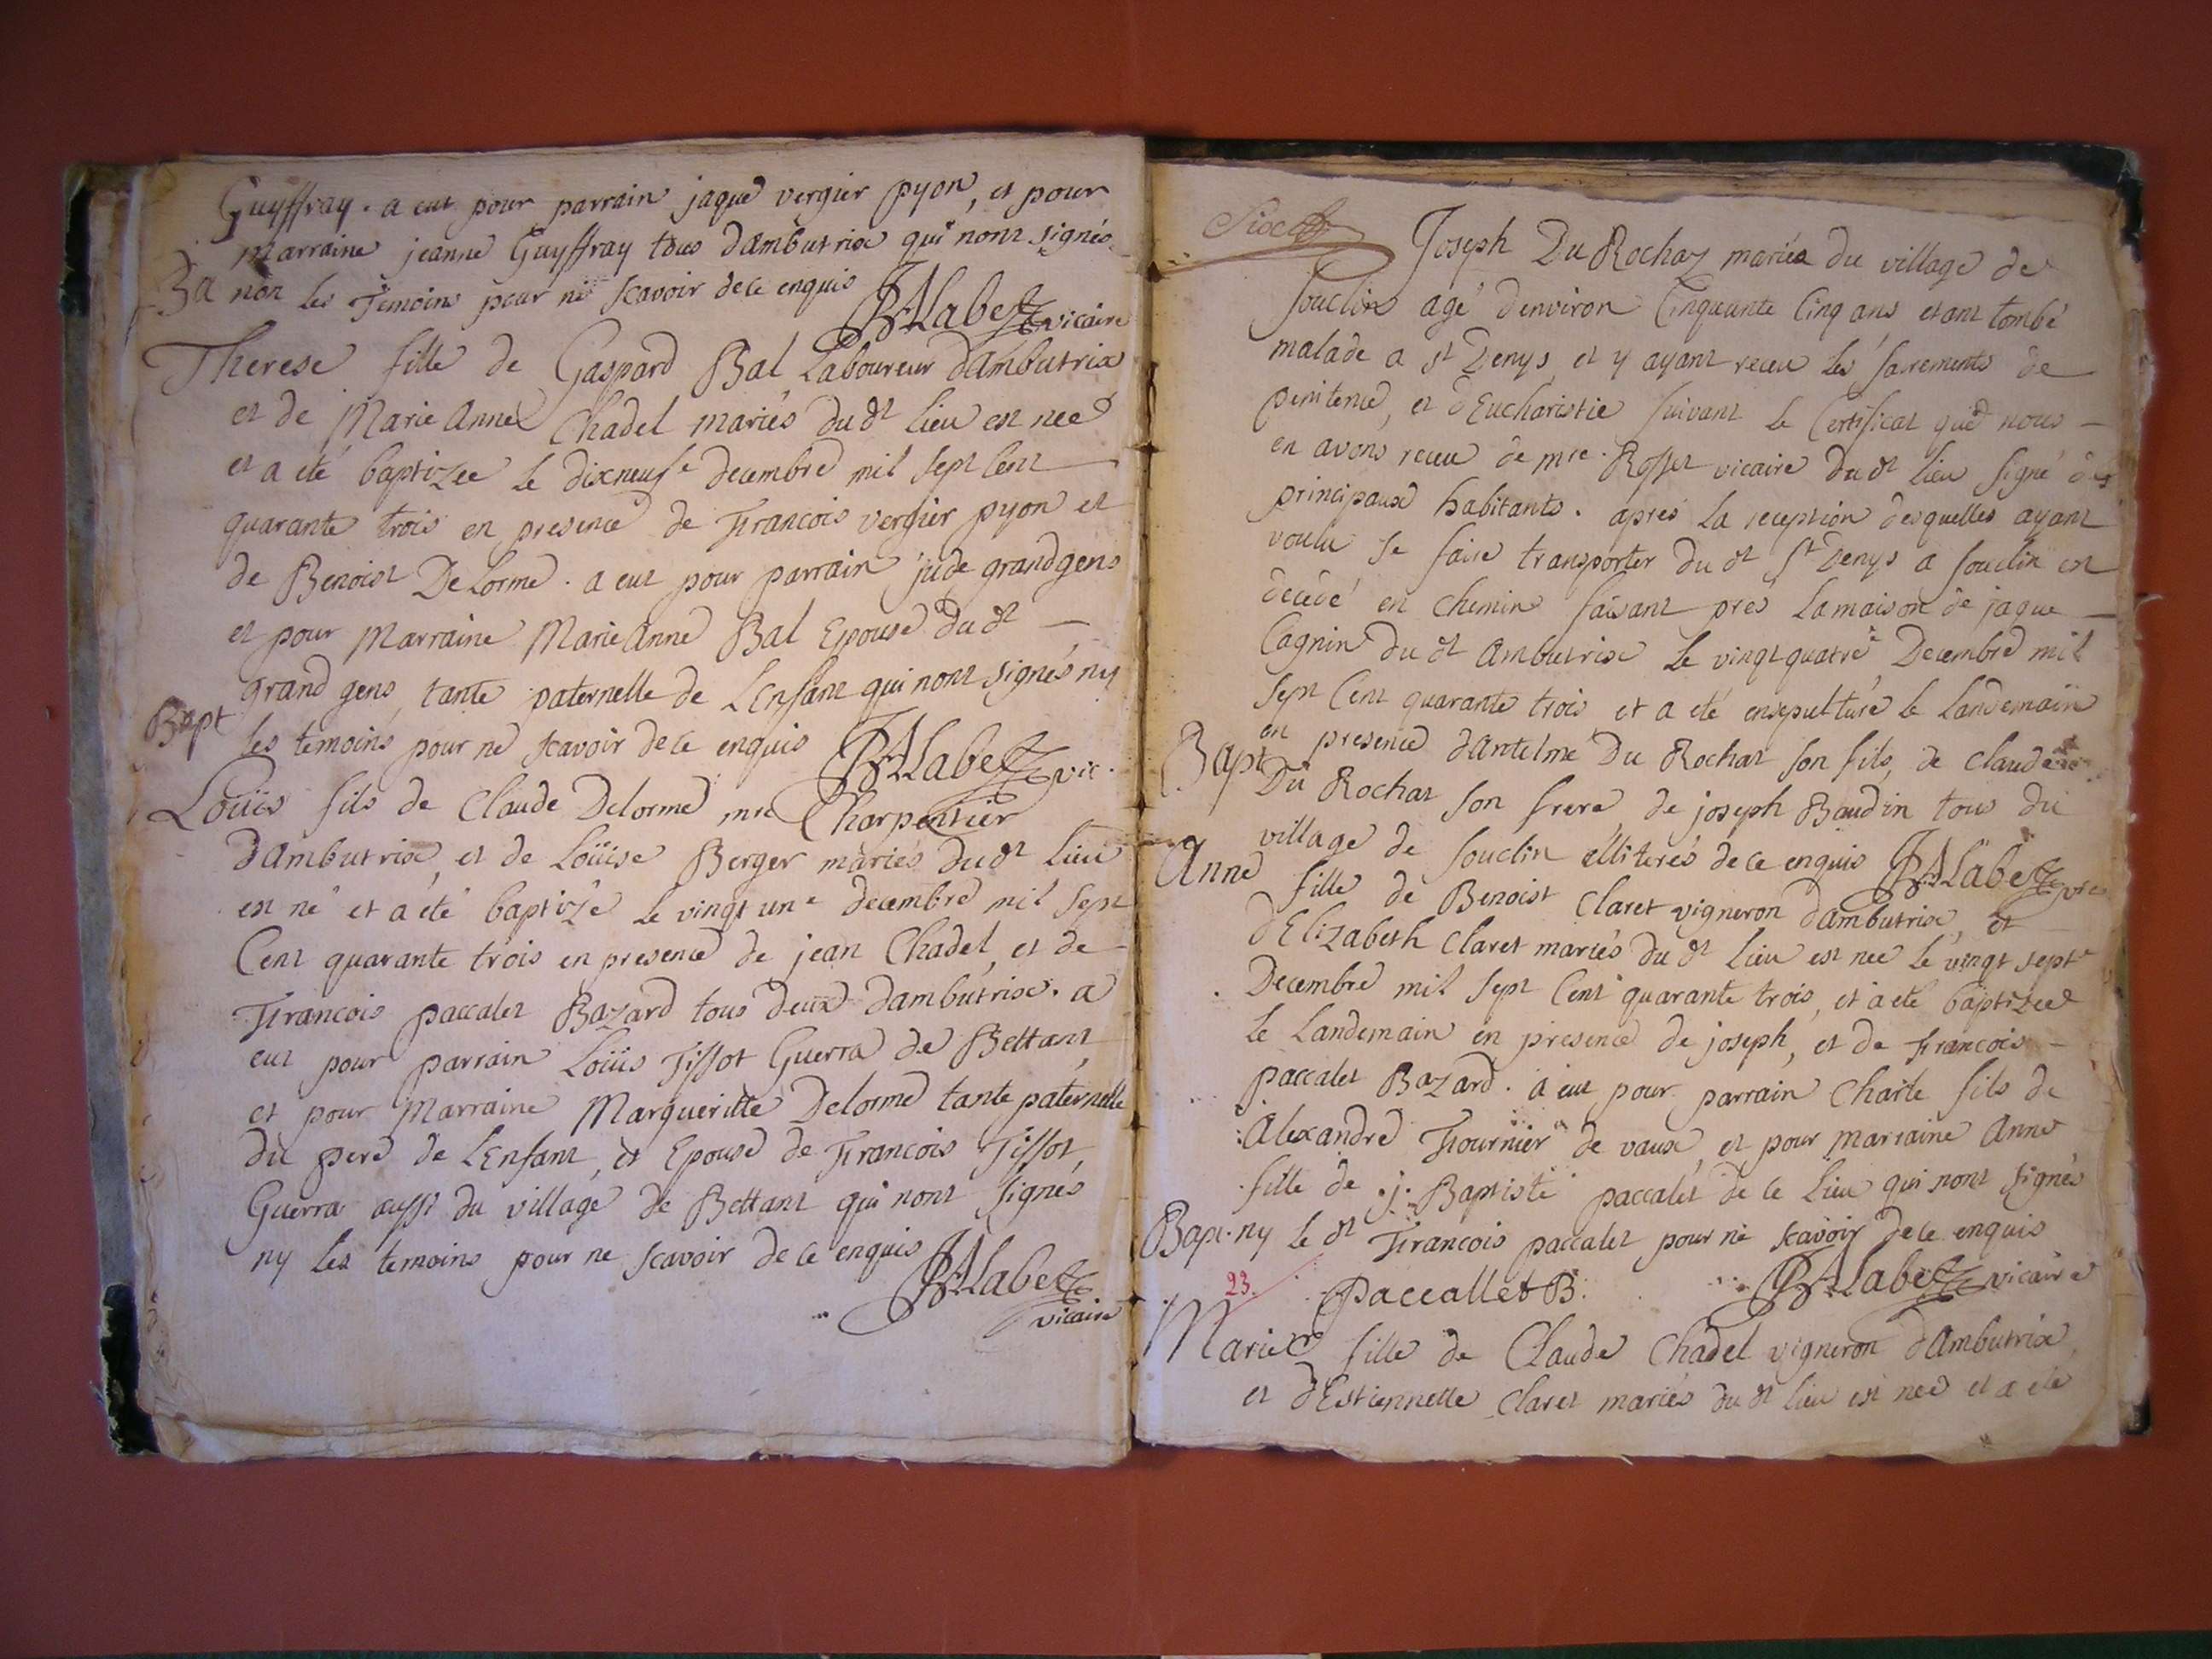 Guyffray. a eut pour parrain jaque vergier pyon, et pour
marraine jeanne Guyffray tous dambutrix qui nont signés
Ba
non les Temoins pour ne scavoir de ce enquis
Labe vicaire
Therese fille de Gaspard Bal Laboureur dambutrix
et de Marie anne Chadel mariés du dt lieu est nee
et a eté baptizee le dixneufe decembre mil sept Cent
quarante trois en presence de Francois vergier pyon et
de Benoist De Lorme. a eut pour parrain jude grandgens
et pour Marraine Marie anne Bal Epouse du dt
grand gens, tante paternelle de LEnfant qui nont signés ny
Bapt
les temoins pour ne scavoir de ce enquis
Labe vic.
Loüis fils de Claude Delorme mre Charpentier
dambutrix, et de Loüise Berger mariés du dt lieu
est né et a été baptizé le vingt une decembre mil sept
Cent quarante trois en presence de jean Chadel, et de
Francois paccalet Bazard tous deux dambutrix. a
eut pour parrain Loüis Tissot Guerra de Bettant,
et pour Marraine Margueritte Delorme tante paternelle
du pere de LEnfant, et Epouse de Francois Tissot,
Guerra aussi du village de Bettant qui nont signés
ny les temoins pour ne scavoir de ce enquis
Labe
vicaire
Joseph Du Rochaz mariéa du village de
souclin agé denviron Cinquante Cinq ans etant tombé
malade a st Denys et y ayant receu les sacrements de
penitence, et dEucharistie suivant le Certificat que nous
en avons receu de mre. Rosset vicaire du dt lieu signé des
principaux habitants. aprés la reception desquelles ayant
voulu se faire transporter du dt st Denys a souclin est
decedé en chemin faisant pres la maison de jaque
Cagnin du dt ambutrix le vingtquatre Decembre mil
sept Cent quarante trois et a eté ensepulturé le landemain
en presence dantelme Du Rochat son fils, de claude
Bapt
Du Rochat son frere de joseph Baudin tous du
village de souclin élliterés de ce enquis
Labe vic
Anne fille de Benoist Claret vigneron dambutrix, et
dElizabeth Claret mariés du dt lieu est nee le vingt septe
Decembre mil sept Cent quarante trois, et a eté baptizee
le Landemain en presence de joseph, et de Francois
paccalet Bazard. a eut pour parrain Charle fils de
alexandre Fournier de vaux et pour marraine anne
fille de j. Baptiste paccalet de ce lieu qui nont signés
Bapt.
ny le dt Francois paccalet pour ne scavoir de ce enquis
23.
Paccallet B.
Labe vicaire
Marie fille de Claude Chadel vigneron dambutrix
et dEstiennette Claret mariés du dt lieu est nee et a eté